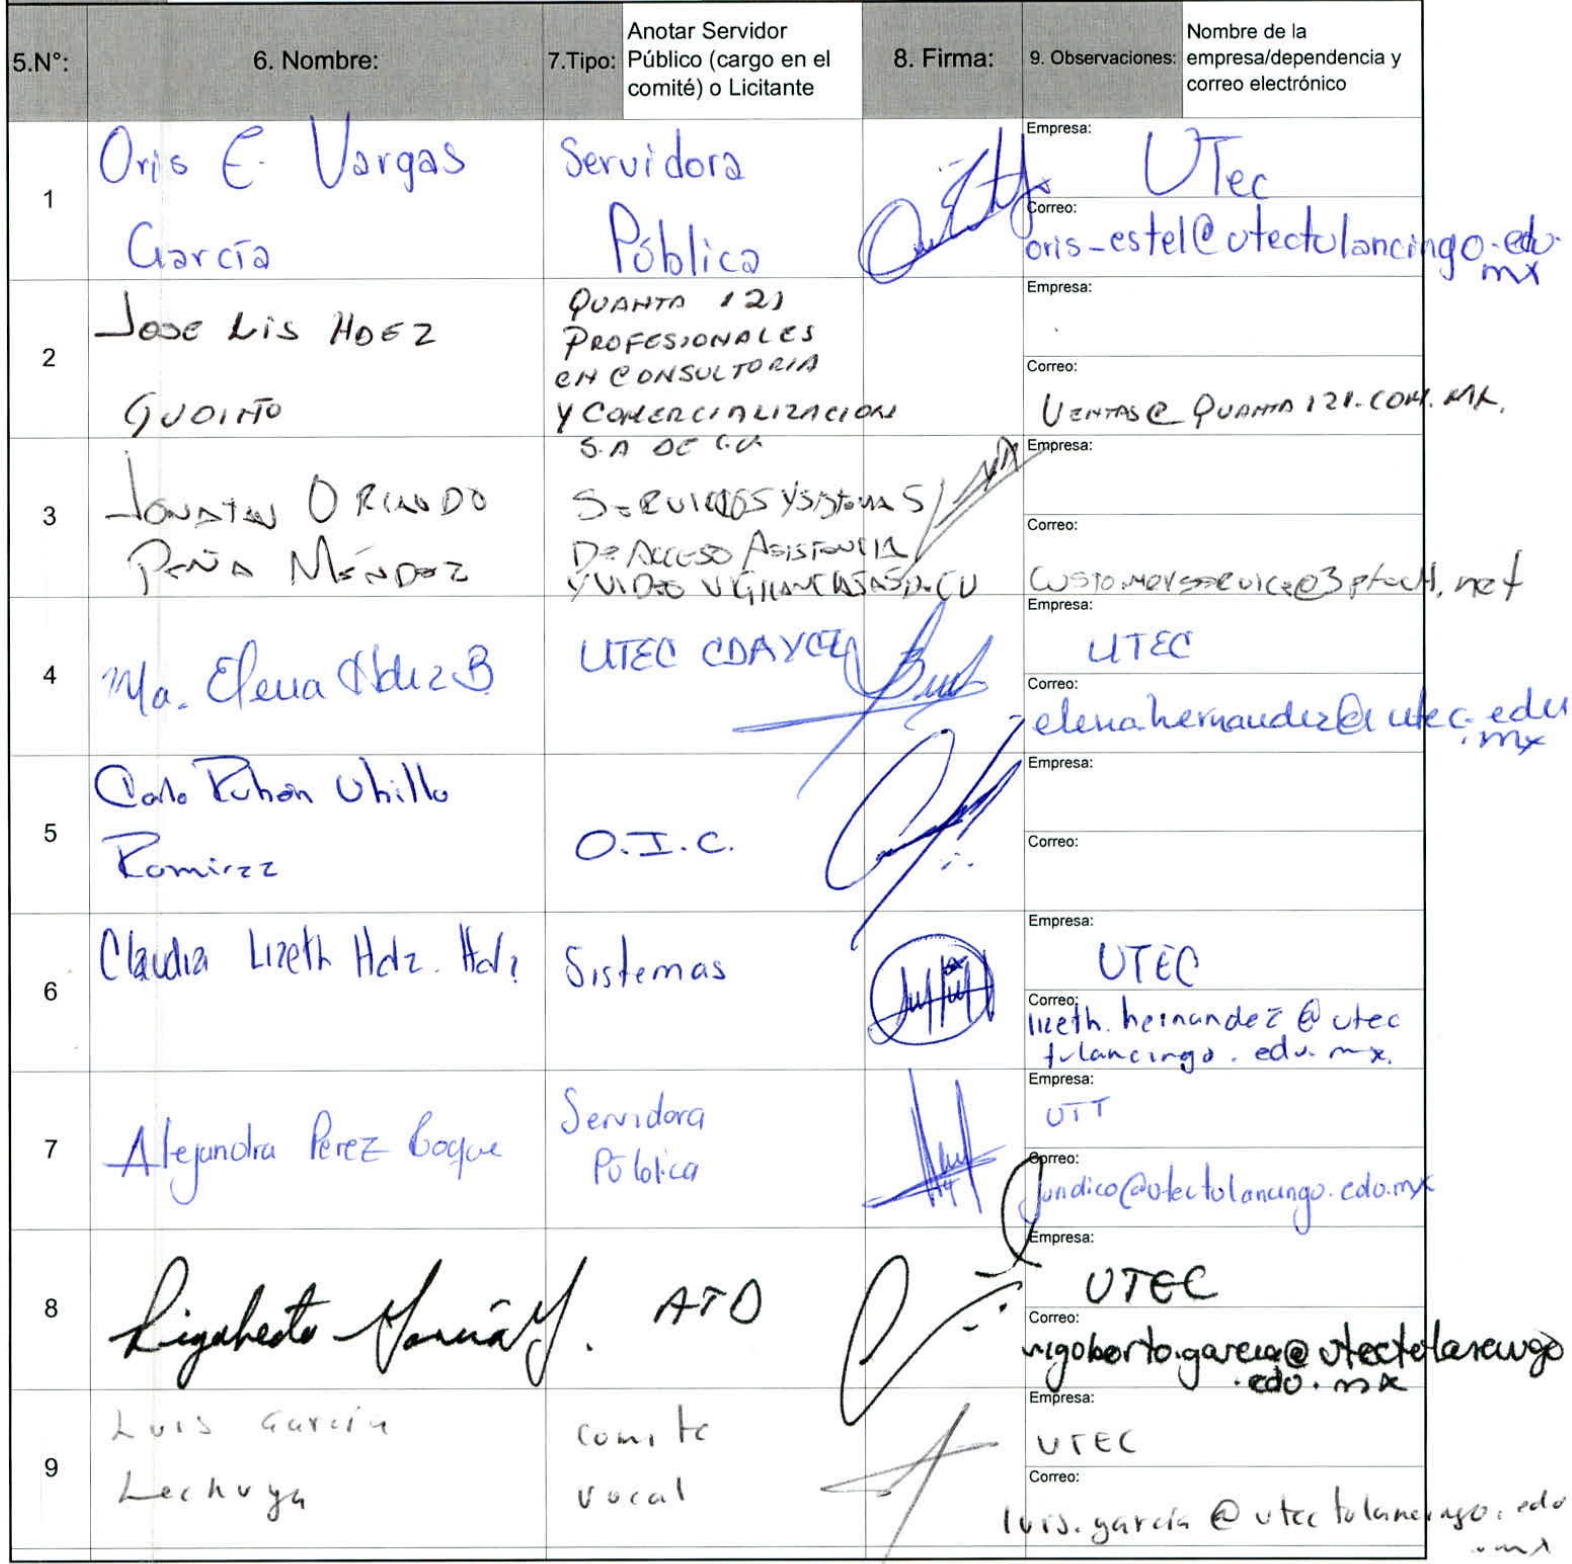 5.N°:
6. Nombre:
7.Tipo:
Anotar Servidor
Público (cargo en el
comité) o Licitante
8. Firma:
9. Observaciones:
Nombre de la
empresa/dependencia y
correo electrónico
1
Oris E. Vargas
García
Servidora
Pública
Empresa:
UTec
Correo:
oris-estel@utectulancingo.edu.
mx
2
Jose Lis HDEZ
GUDIÑO
QUANTA 121
PROFESIONALES
EN CONSULTORIA
Y COMERCIALIZACION
S.A DE C.V
Empresa:
Correo:
VENTAS@QUANTA121.COM.MX.
3
JONATAN ORLANDO
PEÑA MÉNDEZ
SERVICIOS Y SISTEMAS
DE ACCESO ASISTENCIA
Y VIDEO VIGILANCIA SA DE CV
Empresa:
Correo:
customerservice@3ptech.net
4
Ma. Elena Hdez B.
UTEC
Empresa:
UTEC
Correo:
elena.hernandez@utec.edu
.mx
5
Carlo Rubén Ubilla
Ramirez
O.I.C.
Empresa:
Correo:
6
Claudia Lizeth Hdz. Hdz
Sistemas
Empresa:
UTEC
Correo:
lizeth.hernandez@utec
tulancingo.edu.mx.
7
Alejandra Perez Roque
Servidora
Pública
Empresa:
UTT
Correo:
juridico@utectulancingo.edu.mx
8
Rigoberto García
ATD
Empresa:
UTEC
Correo:
rigoberto.garcia@utectulancingo
.edu.mx
9
Luis García
Lechuga
comite
vocal
Empresa:
UTEC
Correo:
luis.garcia@utectulancingo.edu
.mx